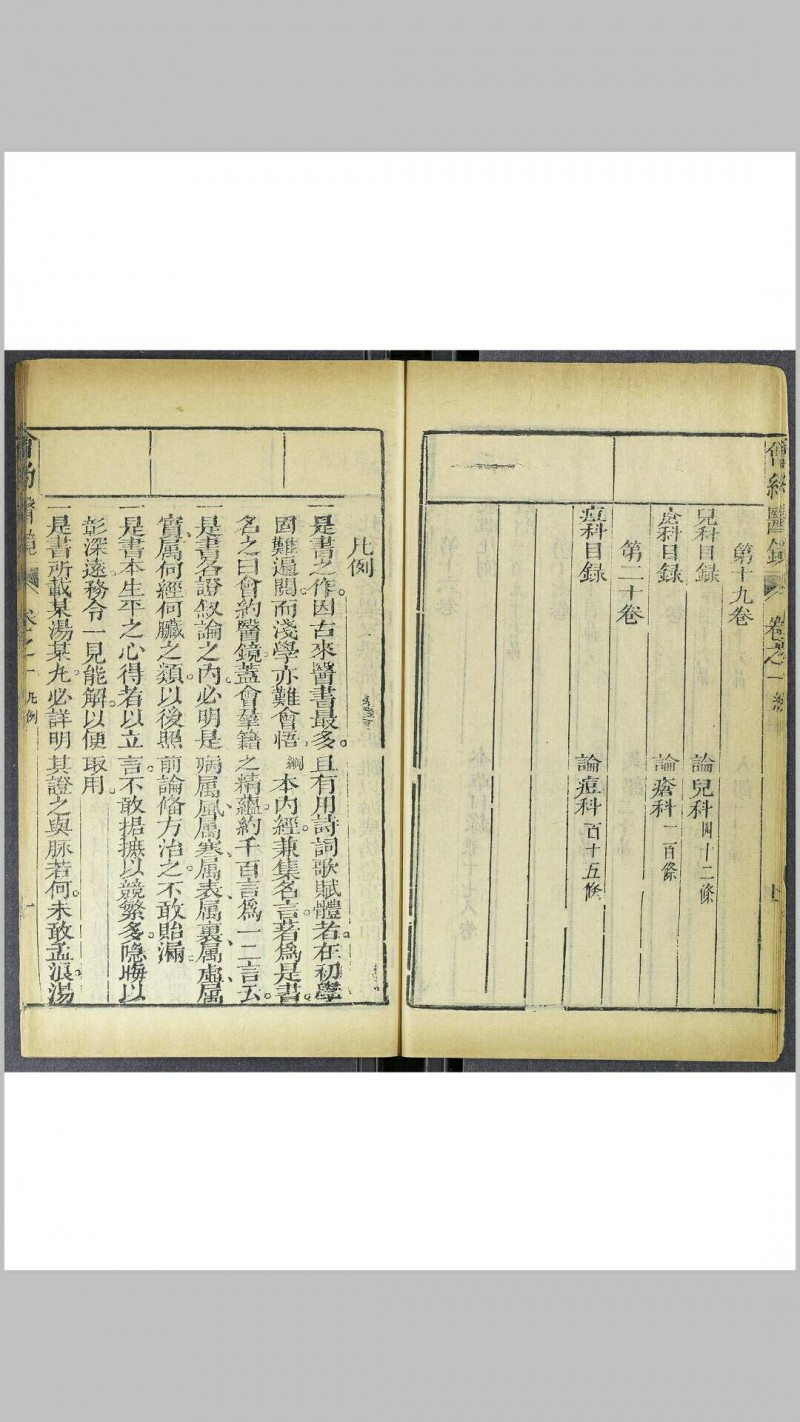 第十九卷
兒科目録 論兒科四十二條
瘡科目録 論瘡科一百條
第二十卷
痘科目録 論痘科百十五條
凡例
一是書之作因古來醫書最多且有用詩詞歌賦體者在初學
固難遍閱而淺學亦難會悟本内經兼集名言著爲是書
名之曰會約醫鏡蓋會羣籍之精蘊約千百言爲一二言云
一是書各證叙論之内必明是病属風属寒属表属裏属虚属
實属何經何臟之類以後照前論俻方治之不敢貽漏
一是書本生平之心得者以立言不敢捃摭以競繁多隐晦以
彰深遠務令一見能解以便取用
一是書所載某湯某丸必詳明其證之與脉若何未敢孟浪湯
會約醫鏡 卷之一 凡例 一